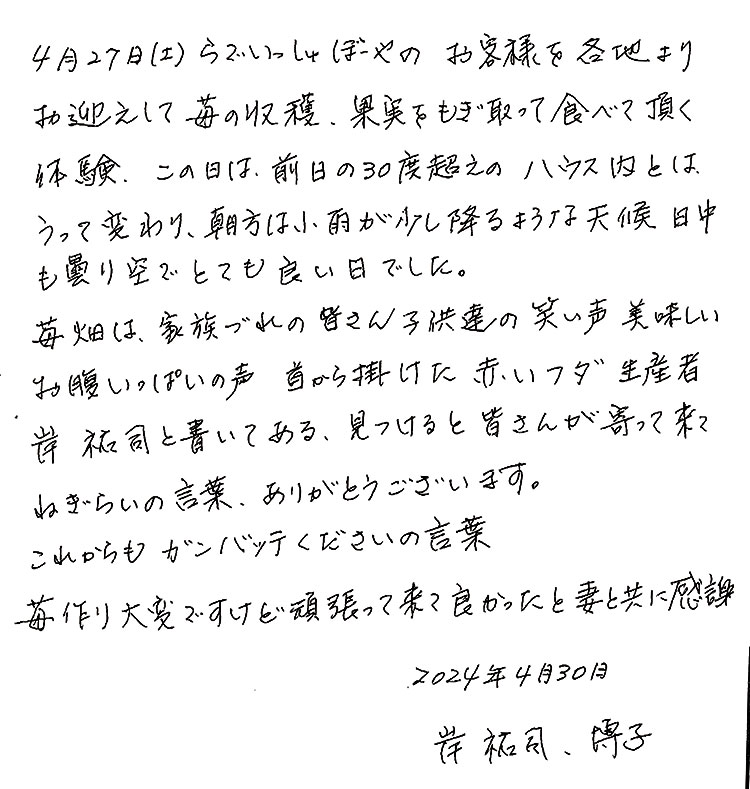 4月27日(土)らでぃっしゅぼーやの お客様を各地より
お迎えして苺の収穫、果実をもぎ取って食べて頂く
体験、この日は、前日の30度超えの ハウス内とは
うって変わり、朝方は小雨が少し降るような天候 日中
も曇り空でとても良い日でした。
苺畑は、家族づれの皆さん子供達の笑い声 美味しい
お腹いっぱいの声 首から掛けた 赤いフダ 生産者
岸 祐司と書いてある、見つけると皆さんが寄って来て
ねぎらいの言葉、ありがとうございます。
これからも ガンバッテくださいの言葉
苺作り大変ですけど頑張って来て良かったと妻と共に感謝
2024年4月30日
岸 祐司、博子